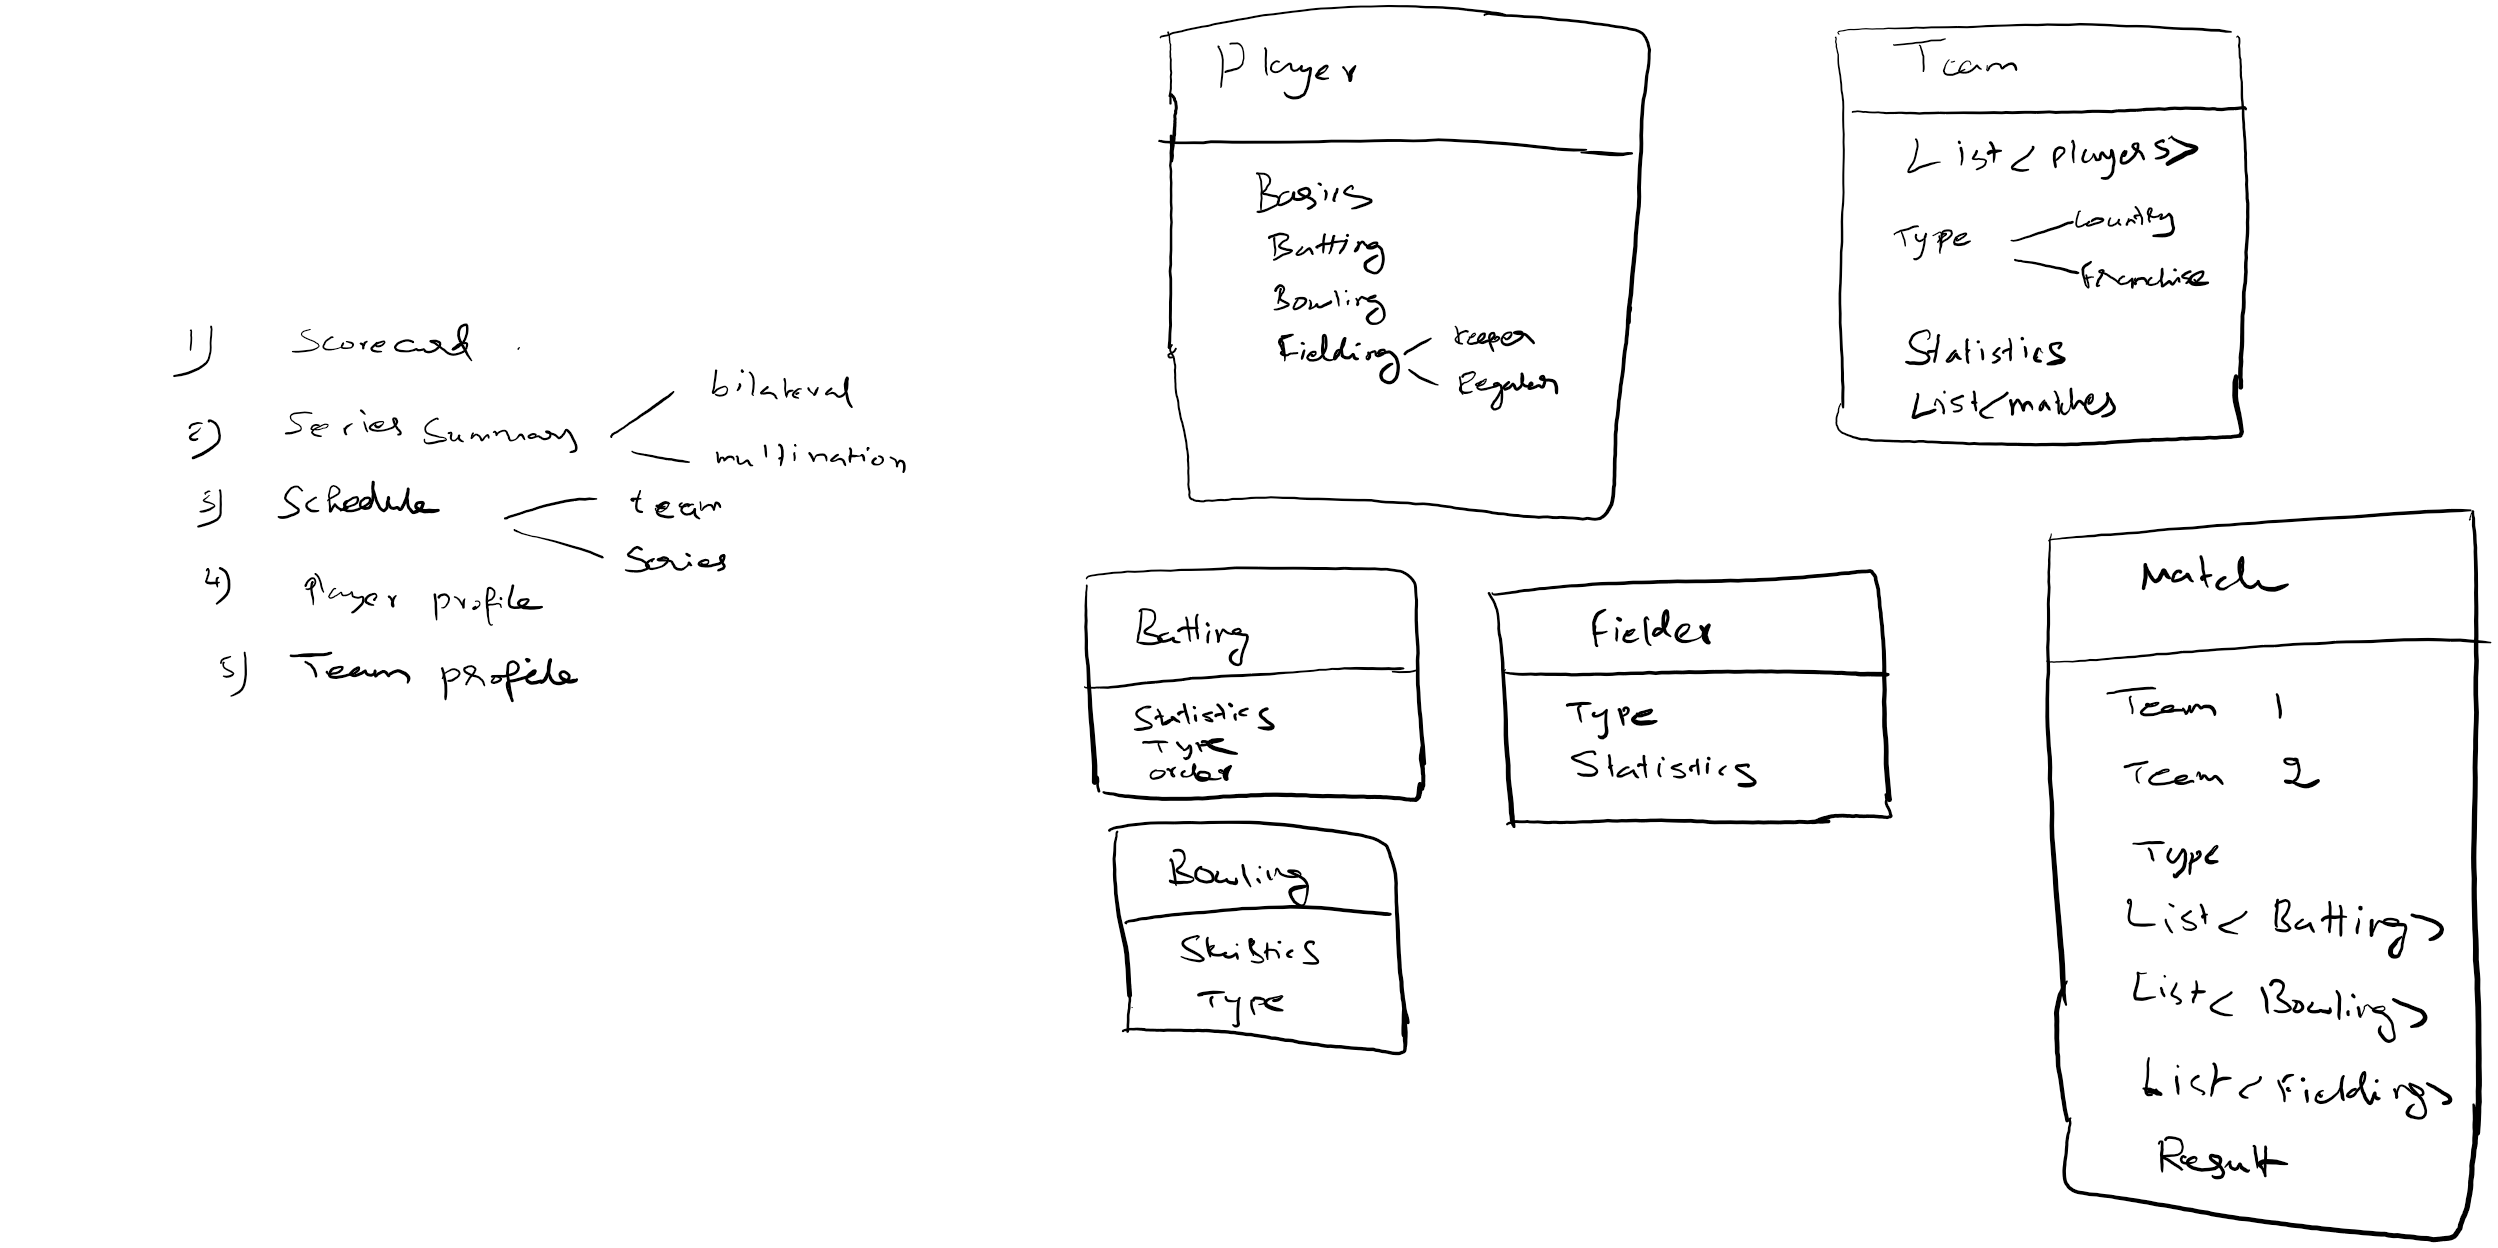 1) Scorecard.
2) Series Summary
bilateral
multination
3) Schedule
team
Series
4) Player profile
5) Team profile
Player
Basics
Batting
Bowling
Fielding
Keeper
Regular
Team
List<players>
Type
Country
Franchise
Statistics
List<matches
Batting
Statistics
Type
order
Fielder
Type
Statistics
Bowling
Statistics
Type
Match
Team 1
Team 2
Type
List<Batting>
List<Bowling>
List<Fielding>
Result